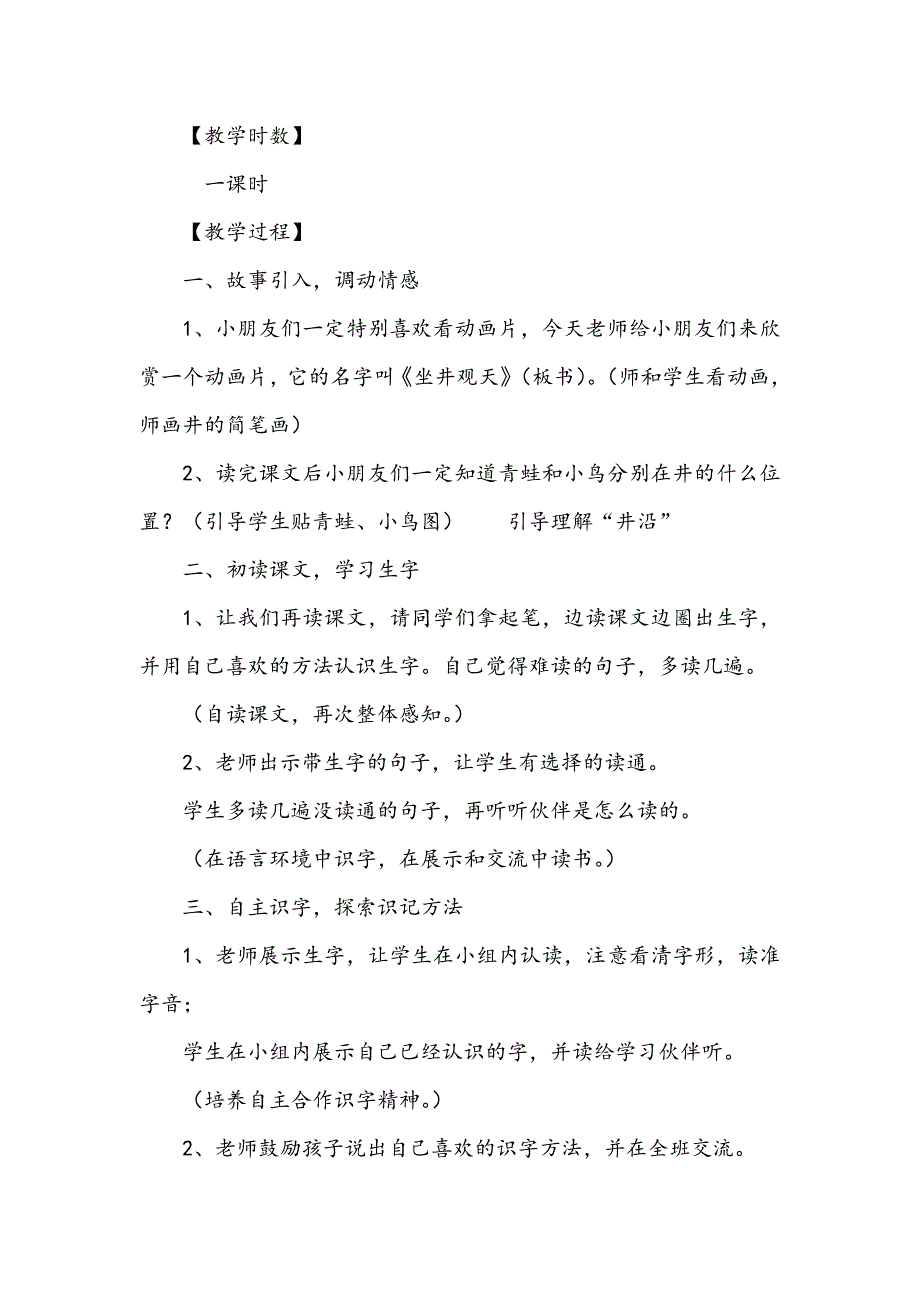 【教学时数】
一课时
【教学过程】
一、故事引入，调动情感
1、小朋友们一定特别喜欢看动画片，今天老师给小朋友们来欣
赏一个动画片，它的名字叫《坐井观天》（板书）。（师和学生看动画，
师画井的简笔画）
2、读完课文后小朋友们一定知道青蛙和小鸟分别在井的什么位
置？（引导学生贴青蛙、小鸟图） 引导理解“井沿”
二、初读课文，学习生字
1、让我们再读课文，请同学们拿起笔，边读课文边圈出生字，
并用自己喜欢的方法认识生字。自己觉得难读的句子，多读几遍。
（自读课文，再次整体感知。）
2、老师出示带生字的句子，让学生有选择的读通。
学生多读几遍没读通的句子，再听听伙伴是怎么读的。
（在语言环境中识字，在展示和交流中读书。）
三、自主识字，探索识记方法
1、老师展示生字，让学生在小组内认读，注意看清字形，读准
字音；
学生在小组内展示自己已经认识的字，并读给学习伙伴听。
（培养自主合作识字精神。）
2、老师鼓励孩子说出自己喜欢的识字方法，并在全班交流。